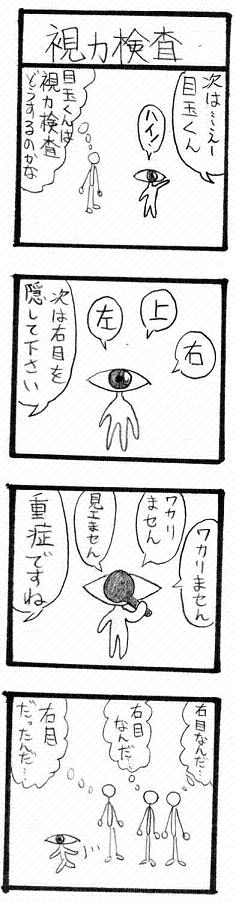 視力検査
次は…えー
目玉くん
ハイ!
目玉くんは
視力検査
どうするのかな
右
上
左
次は右目を
隠して下さい
ワカリません
ワカリ
ません
見エません
重症ですね
右目なんだ…
右目
なんだ…
右目
だったんだ…